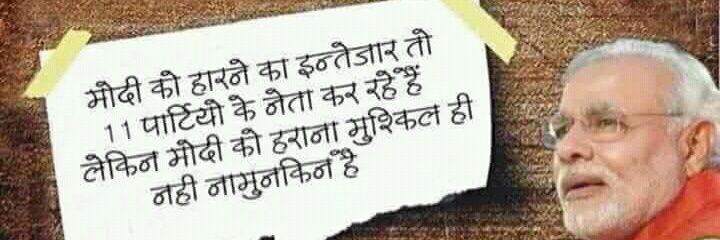 मोदी को हारने का इन्तेजार तो
11 पार्टियो के नेता कर रहेहैं
लेकिन मोदी को हराना मुश्किल ही
नही नामुनकिन है